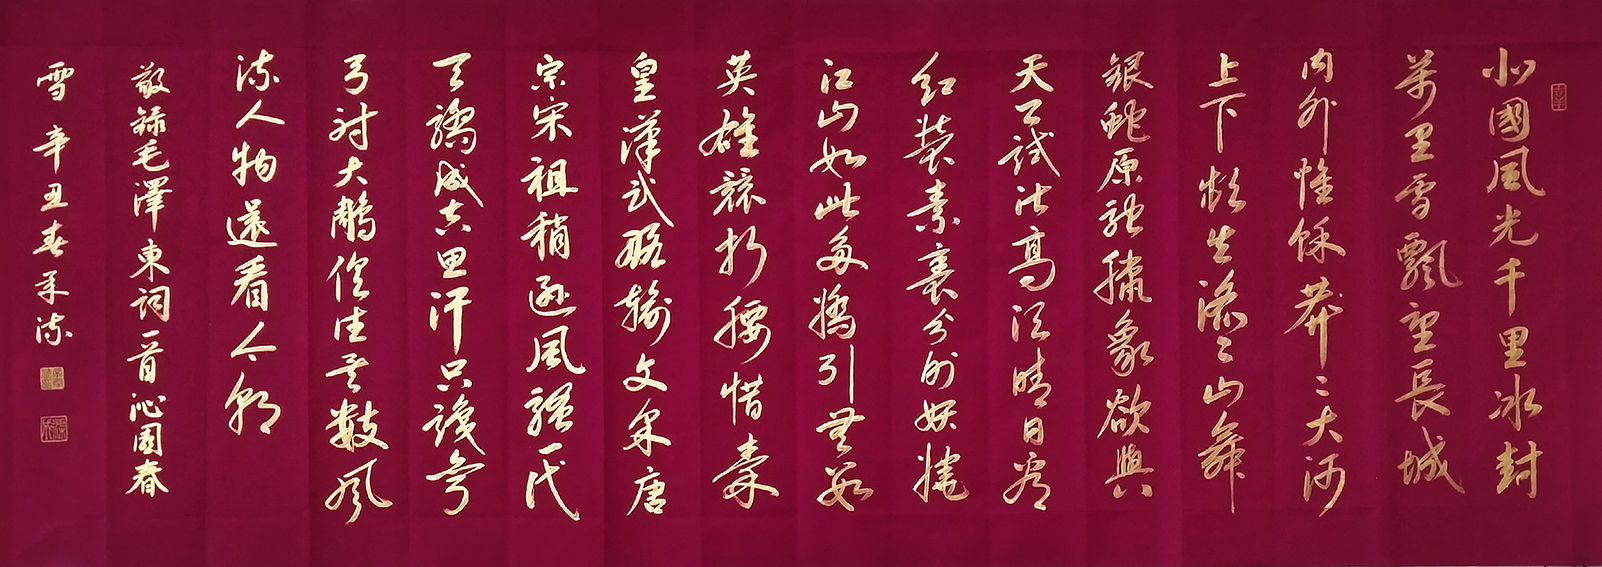 北國風光千里冰封
萬里雪飄望長城
内外惟餘莽〻大河
上下頓失滔〻山舞
銀蛇原馳蠟象欲與
天公試比高須晴日看
红裝素裹分外妖嬈
江山如此多嬌引無數
英雄競折腰惜秦
皇漢武略輸文采唐
宗宋祖稍遜風騷一代
天驕成吉思汗只識彎
弓射大雕俱往矣數風
流人物還看今朝
敬録毛澤東詞一首沁園春
雪 辛丑春流